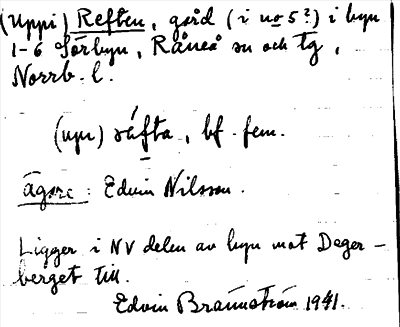 (Uppi) Reften, gård (i no 5?) i byn
1-6 Sörbyn, Råneå sn och tg,
Norrb. l.
(upi) ráfta, bf. fem.
Ägare: Edvin Nilsson.
Ligger i NV delen av byn mot Deger-
berget till.
Edvin Brännström 1941.